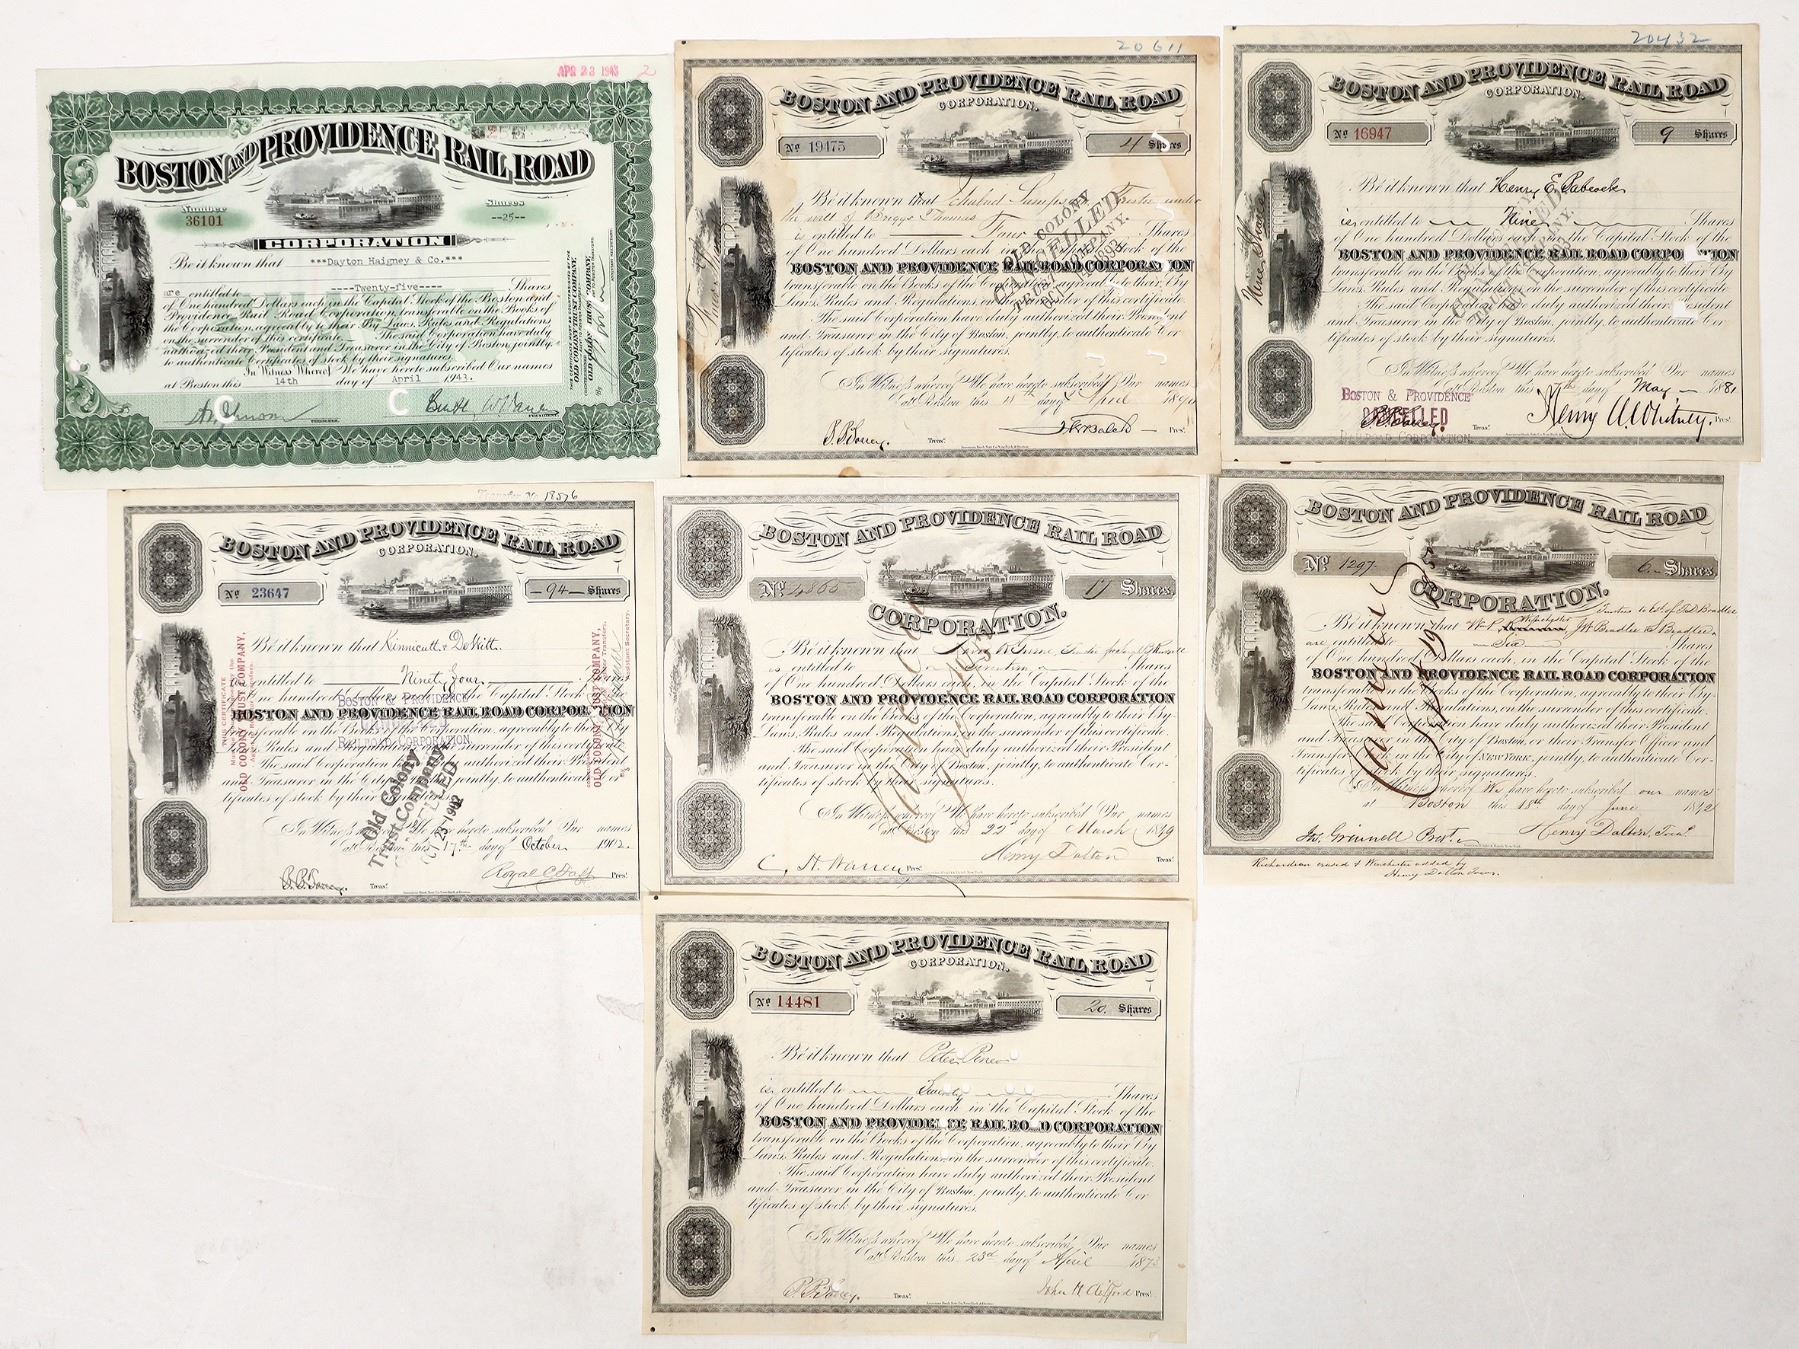 APR 23 1943 2
BOSTON AND PROVIDENCE RAIL ROAD
Number
36101
Shares
--25--
CORPORATION
Be it known that ***Dayton Haigney & Co.***
are entitled to ----Twenty-five---- Shares
of One Hundred Dollars each in the Capital Stock of the Boston and
Providence Rail Road Corporation, transferable on the Books of
the Corporation, agreeably to their By Laws, Rules and Regulations
on the surrender of this certificate. The said Corporation have duly
authorized their President and Treasurer in the City of Boston, jointly,
to authenticate Certificates of stock by their signatures.
In Witness Whereof We have hereto subscribed Our names
at Boston this 14th day of April 1943.
TREASURER.
PRESIDENT
OLD COLONY TRUST COMPANY,
20611
BOSTON AND PROVIDENCE RAIL ROAD
CORPORATION.
No 19475
4 Shares
Be it known that Trustee under
the will of Briggs Thomas
is entitled to Four Shares
of One hundred Dollars each in the Capital Stock of the
BOSTON AND PROVIDENCE RAIL ROAD CORPORATION
transferable on the Books of the Corporation, agreeably to their By
Laws, Rules and Regulations, on the surrender of this certificate
The said Corporation have duly authorized their President
and Treasurer in the City of Boston, jointly, to authenticate Cer-
tificates of stock by their signatures.
In Witness whereof We have hereto subscribed Our names
at Boston this 18th day of April
Treas. Pres.
OLD COLONY
CANCELLED
TRUST COMPANY.
20432
BOSTON AND PROVIDENCE RAIL ROAD
CORPORATION.
No 16947
9 Shares
Be it known that Henry E. Babcock
is entitled to Nine Shares
of One hundred Dollars each in the Capital Stock of the
BOSTON AND PROVIDENCE RAIL ROAD CORPORATION
transferable on the Books of the Corporation, agreeably to their By
Laws, Rules and Regulations, on the surrender of this certificate
The said Corporation have duly authorized their President
and Treasurer in the City of Boston, jointly, to authenticate Cer-
tificates of stock by their signatures.
In Witness whereof We have hereto subscribed Our names
at Boston this day of May 1881
BOSTON & PROVIDENCE
CANCELLED
RAILROAD CORPORATION.
Treas. Henry A. Whitney, Pres.
Transfer No 18576
BOSTON AND PROVIDENCE RAIL ROAD
CORPORATION.
No 23647
-94- Shares
Be it known that Kinnicutt & DeWitt
entitled to Ninety four
One hundred Dollars each in the Capital Stock of the
BOSTON AND PROVIDENCE RAIL ROAD CORPORATION
transferable on the Books of the Corporation, agreeably to their By
Laws, Rules and Regulations, on the surrender of this certificate
The said Corporation have duly authorized their President
and Treasurer in the City of Boston, jointly, to authenticate Cer-
tificates of stock by their signatures.
In Witness whereof We have hereto subscribed Our names
at Boston this 17th day of October 1902.
Treas. Royal C. Taft Pres.
OLD COLONY TRUST COMPANY,
BOSTON & PROVIDENCE
RAILROAD CORPORATION
OLD COLONY TRUST COMPANY,
Old Colony
Trust Company
CANCELLED
OCT 25 1902
BOSTON AND PROVIDENCE RAIL ROAD
No. 4865
17 Shares
CORPORATION.
Be it known that
is entitled to Seventeen Shares
of One hundred Dollars each in the Capital Stock of the
BOSTON AND PROVIDENCE RAIL ROAD CORPORATION
transferable on the Books of the Corporation, agreeably to their By
Laws, Rules and Regulations, on the surrender of this certificate.
The said Corporation have duly authorized their President
and Treasurer in the City of Boston, jointly, to authenticate Cer-
tificates of stock by their signatures.
In Witness whereof We have hereto subscribed Our names
at Boston this 22d day of March 1849
C. H. Warren Pres. Henry Dalton Treas.
BOSTON AND PROVIDENCE RAIL ROAD
No. 1297
6 Shares
CORPORATION.
Be it known that
are entitled to Six Shares
of One hundred Dollars each, in the Capital Stock of the
BOSTON AND PROVIDENCE RAIL ROAD CORPORATION
transferable on the Books of the Corporation, agreeably to their By-
Laws, Rules and Regulations, on the surrender of this certificate.
The said Corporation have duly authorized their President
and Treasurer in the City of Boston, or their Transfer Officer and
Treasurer in the City of NEW YORK, jointly, to authenticate Cer-
tificates of stock by their signatures.
In Witness whereof We have hereto subscribed our names
at Boston this 18th day of June 1842
Jos. Grinnell Prest. Henry Dalton, Treas
Richardson erased & Winchester added by
Henry Dalton Treas.
BOSTON AND PROVIDENCE RAIL ROAD
CORPORATION.
No 14481
20 Shares
Be it known that Peter
is entitled to Twenty Shares
of One hundred Dollars each, in the Capital Stock of the
BOSTON AND PROVIDENCE RAIL ROAD CORPORATION
transferable on the Books of the Corporation, agreeably to their By
Laws, Rules and Regulations, on the surrender of this certificate.
The said Corporation have duly authorized their President
and Treasurer in the City of Boston, jointly, to authenticate Cer-
tificates of stock by their signatures.
In Witness whereof We have hereto subscribed Our names
at Boston this 23d day of April 1873
Treas. John H. Clifford Pres.